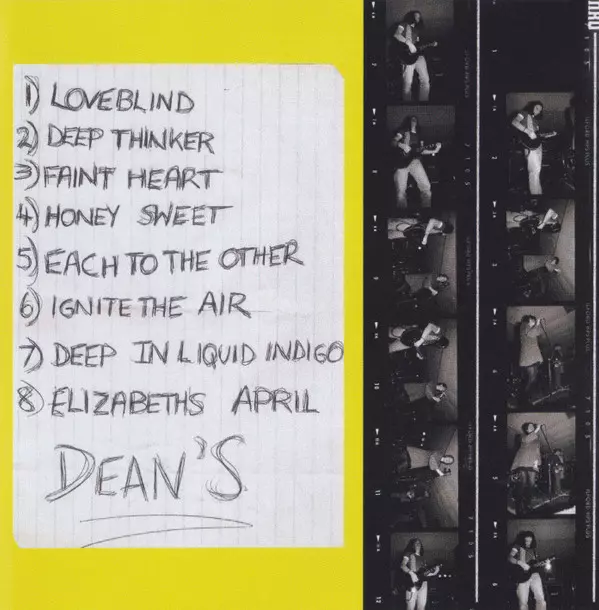 1) LOVEBLIND
2) DEEP THINKER
3) FAINT HEART
4) HONEY SWEET
5) EACH TO THE OTHER
6) IGNITE THE AIR
7) DEEP IN LIQUID INDIGO
8) ELIZABETHS APRIL
DEAN'S